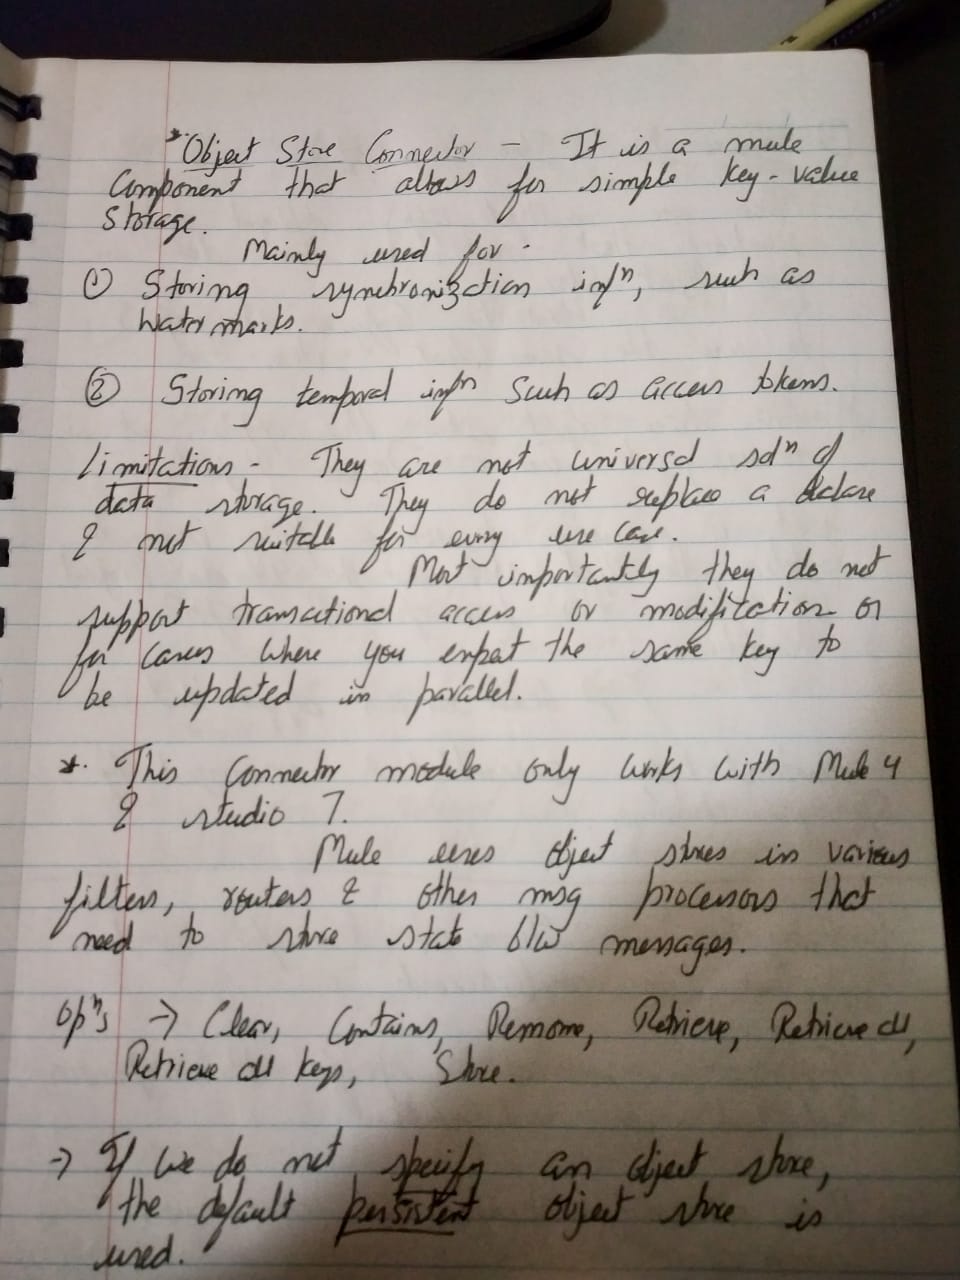 * Object Store Connector - It is a mule
Component that allows for simple key-value
Storage.
Mainly used for -
① Storing synchronization infⁿ, such as
Watermarks.
② Storing temporal infⁿ Such as access tokens.
Limitations - They are not universal solⁿ of
data storage. They do not replace a
& not suitable for every use case.
Most importantly they do not
support transactional access or modification or
for cases where you expect the same key to
be updated in parallel.
*. This Connector module only works with Mule 4
& studio 7.
Mule uses object stores in various
filters, routers & other msg processors that
need to store state b/w messages.
opⁿs → Clear, Contains, Remove, Retrieve, Retrieve all,
Retrieve all keys, Store.
→ If we do not specify an object store,
the default persistent object store is
used.